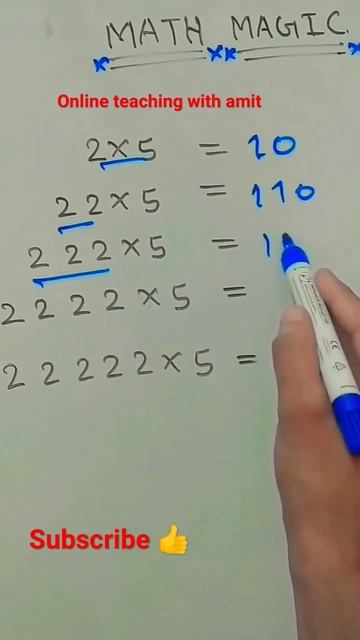 MATH MAGIC
Online teaching with amit
2×5 = 10
22×5 = 110
222×5 = 1
2222×5 =
22222×5 =
Subscribe 👍